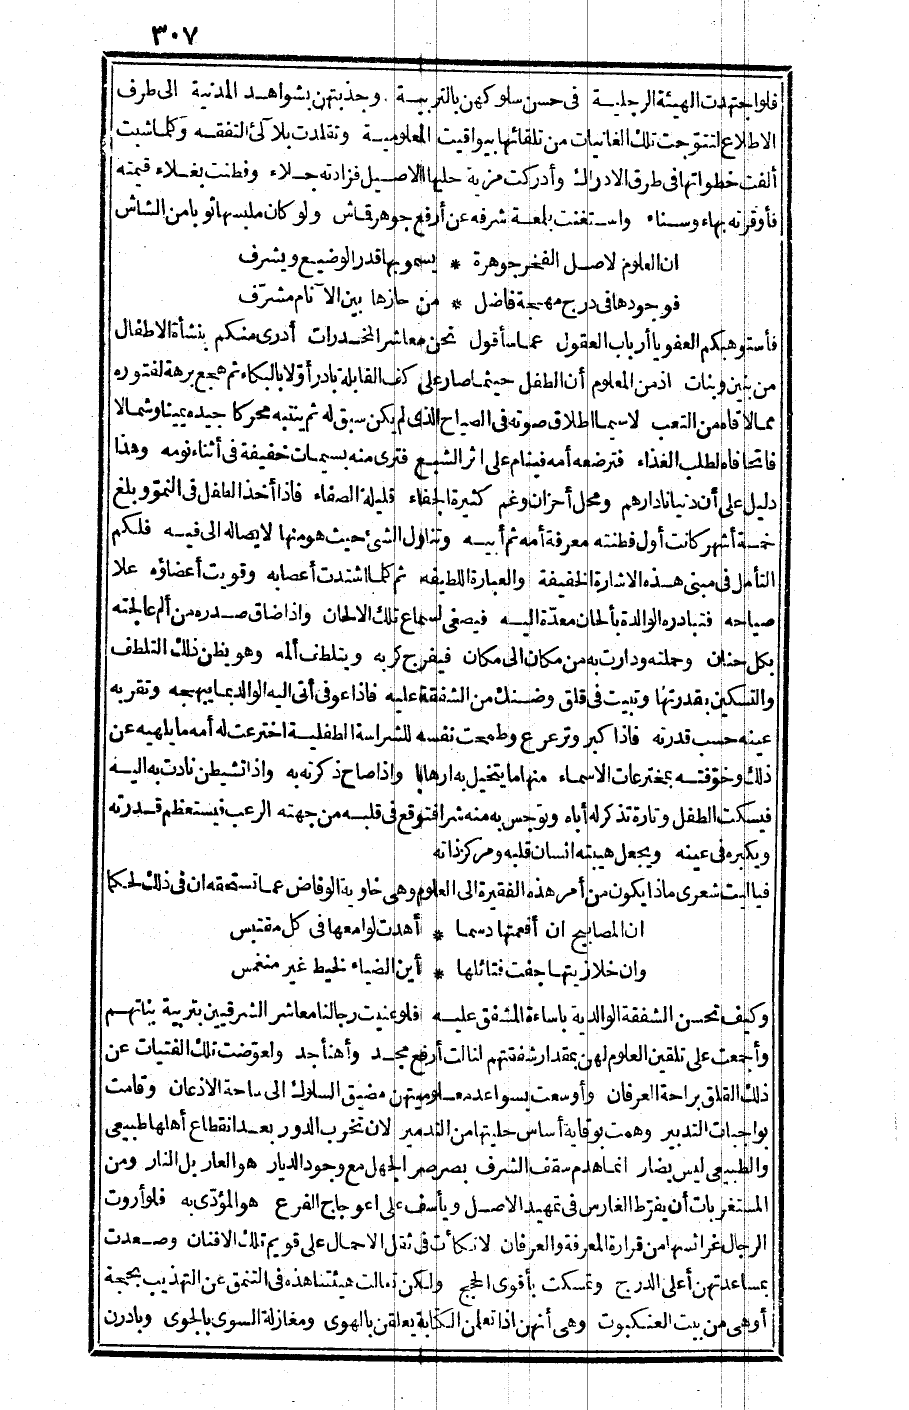 ٣٠٧
فلواجتهدت الهيئة الرجلية فى حسن سلوكهن بالتربية . وجذبتهن بشواهد المدنية الى طرف
الاطلاع لتتوّجت تلك الغانيات من تلقائها بيواقيت المعلومية وتقلدت بلآلئ التفقه وكلما شبت
ألفت خطواتها فى طرق الادراك وأدركت مزية حليها الاصيل فزادته جلاء وفطنت بغلاء قيمته
فأوقرته بهاء وسناء واستغنت بلمعة شرفه عن أرفع جوهر قماش ولو كان ملبسها ثوبا من الشاش
ان العلوم لاصل الفخر جوهرة * يسمو بها قدر الوضيع ويشرف
فوجودها فى درج مهجة فاضل * من حازها بين الآنام مشرّف
فأستوهبكم العفو يا أرباب العقول عما سأقول نحن معاشر المخدرات أدرى منكم بنشأة الاطفال
من بنين وبنات اذ من المعلوم أن الطفل حيثما صار على كف القابلة بادر أوّلا بالبكاء ثم هجع برهة لفتوره
مما لاقاه من التعب لا سيما اطلاق صوته فى الصياح الذى لم يكن سبق له ثم ينتبه محركا جيده يمينا وشمالا
فاتحا فاه لطلب الغذاء فترضعه أمه فينام على اثر الشبع فترى منه بسيمات خفيفة فى أثناء نومه وهذا
دليل على أن دنيانا دار هم ومحل أحزان وغم كثيرة الجفاء قليلة الصفاء فاذا أخذ الطفل فى النموّ وبلغ
خمسة أشهر كانت أول فطنته معرفة أمه ثم أبيه وتناول الشئ حيث هو منها لايصاله الى فيه فلكم
التأمل فى مبنى هذه الاشارة الخفيفة والعبارة اللطيفه ثم كلما اشتدت أعصابه وقويت أعضاؤه علا
صياحه فتبادره الوالدة بألحان معدّة اليه فيصغى لسماع تلك الالحان واذا ضاق صدره من ألم عالجته
بكل حنان وحملته ودارت به من مكان الى مكان فيفرج كربه ويتلطف ألمه وهو يظن ذلك التلطف
والتسكين بقدرتها وتبيت فى قلق وضنك من الشفقة عليه فاذا عوفى أتى اليه الوالد بما يبهجه وتقر به
عينه حسب قدرته فاذا كبر وترعرع وطمحت نفسه للشراسة الطفلية اخترعت له أمه ما يلهيه عن
ذلك وخوّفته بمخترعات الاسماء منها ما يتخيل به ارهابا واذا صاح ذكرته به واذا تشيطن نادت به اليه
فيسكت الطفل وتارة تذكر له أباه وتوجس به منه شرا فتوقع فى قلبه من جهته الرعب فيستعظم قدرته
ويكبره فى عينه ويجعل هيبته انسان قلبه ومركز ذاته
فيا ليت شعرى ماذا يكون من أمر هذه الفقيرة الى العلوم وهى خاوية الوفاض عما تستحقه ان فى ذلك لحكما
ان المصابيح ان أفعمتها دسما * أهدت لوامعها فى كل مقتبس
وان خلا زيتها جفت فتائلها * أين الضياء لخيط غير منغمس
وكيف تحسن الشفقة الوالدية باساءة المشفق عليه فلو عنيت رجالنا معاشر الشرقيين بتربية بناتهم
وأجمعت على تلقين العلوم لهن بمقدار شفقتهم لنالت أرفع مجد وأهنأ جد ولعوّضت تلك الفتيات عن
ذلك القلق براحة العرفان وأوسعت بسواعد معلوميتهن مضيق السلوك الى ساحة الاذعان وقامت
بواجبات التدبير وهمت بوقاية أساس حليتها من التدمير لان تخرب الدور بعد انقطاع أهلها طبيعى
والطبيعى ليس بضار انما هدم سقف الشرف بصرصر الجهل مع وجود الديار هو العار بل النار ومن
المستغربات أن يفرّط الغارس فى تمهيد الاصل ويأسف على اعوجاج الفرع هو المؤدّى به فلو أروت
الرجال غرائسها من قرارة المعرفة والعرفان لا تكأت فى ثقل الاحمال على قويم تلك الافنان وصعدت
بمساعدتهن أعلى الدرج وتمسكت بأقوى الحجج ولكن زمالت هيئتنا هذه فى التنمق عن التهذيب بحجة
أوهى من بيت العنكبوت وهى أنهن اذا تعلمن الكتابة يعلقن بالهوى ومغازلة السوى بالجوى وبادرن